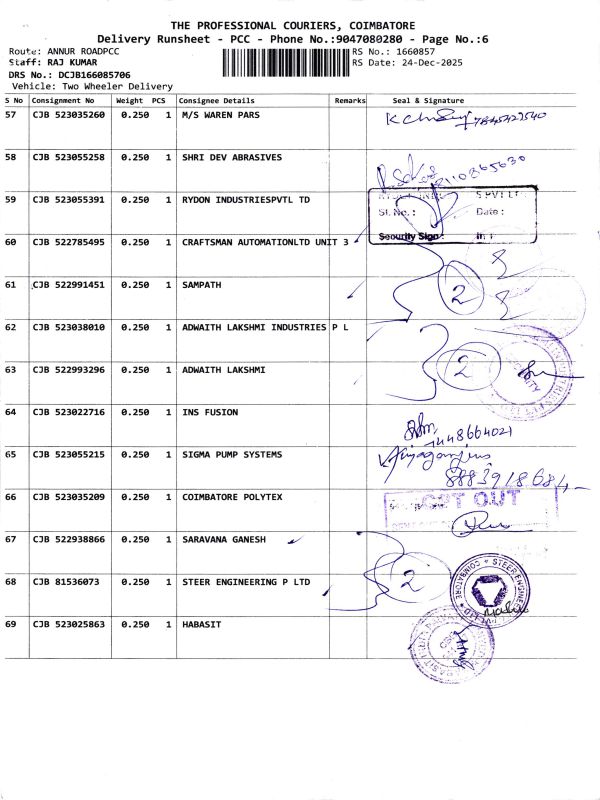 THE PROFESSIONAL COURIERS, COIMBATORE
Delivery Runsheet - PCC - Phone No.:9047080280 - Page No.:6
Route: ANNUR ROADPCC RS No.: 1660857
Staff: RAJ KUMAR RS Date: 24-Dec-2025
DRS No.: DCJB166085706
Vehicle: Two Wheeler Delivery
S No Consignment No Weight PCS Consignee Details Remarks Seal & Signature
57 CJB 523035260 0.250 1 M/S WAREN PARS
58 CJB 523055258 0.250 1 SHRI DEV ABRASIVES
59 CJB 523055391 0.250 1 RYDON INDUSTRIESPVTL TD
Sl. No.: Date:
Security Sign:
60 CJB 522785495 0.250 1 CRAFTSMAN AUTOMATIONLTD UNIT 3
61 CJB 522991451 0.250 1 SAMPATH 2
62 CJB 523038010 0.250 1 ADWAITH LAKSHMI INDUSTRIES P L
63 CJB 522993296 0.250 1 ADWAITH LAKSHMI 2
SECURITY
64 CJB 523022716 0.250 1 INS FUSION
7448664021
65 CJB 523055215 0.250 1 SIGMA PUMP SYSTEMS
8883918684
66 CJB 523035209 0.250 1 COIMBATORE POLYTEX
OUT
67 CJB 522938866 0.250 1 SARAVANA GANESH
68 CJB 81536073 0.250 1 STEER ENGINEERING P LTD 2
COIMBATORE
69 CJB 523025863 0.250 1 HABASIT